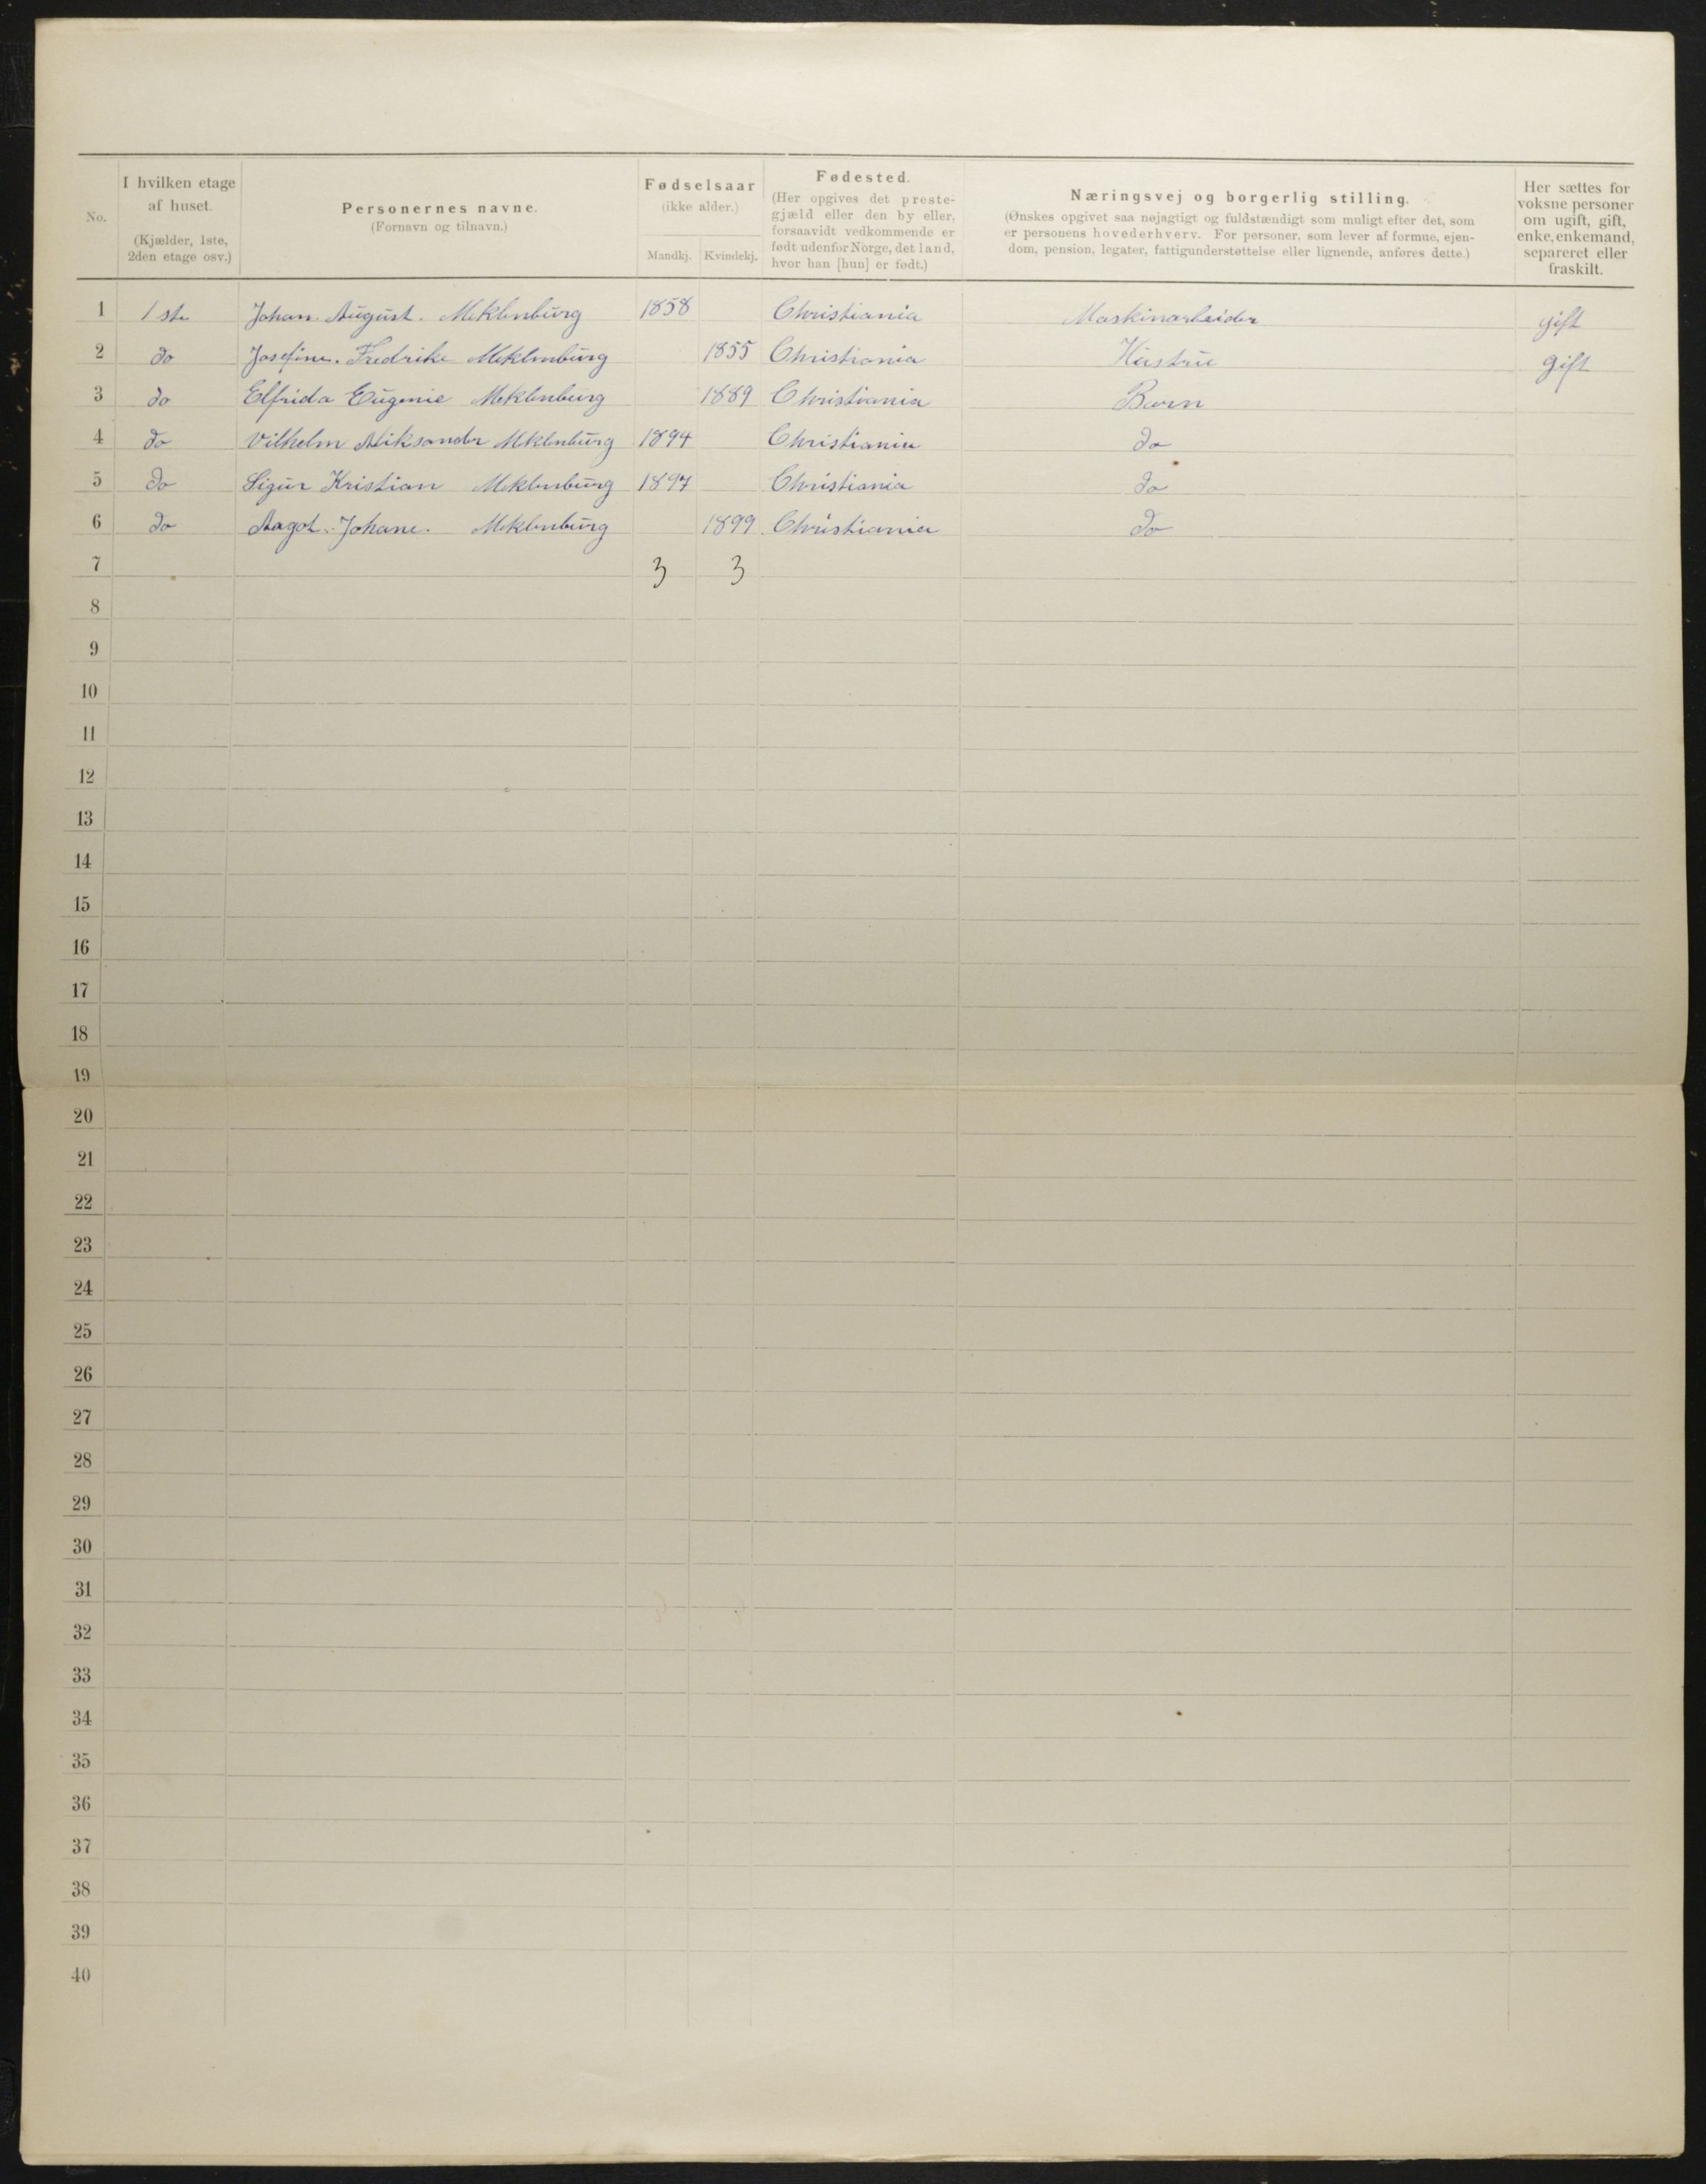 No.
I hvilken etage
af huset.
(Kjælder, 1ste,
2den etage osv.)
Personernes navne.
(Fornavn og tilnavn.)
Fødselsaar
(ikke alder.)
Mandkj. Kvindekj.
Fødested.
(Her opgives det preste-
gjæld eller den by eller,
forsaavidt vedkommende er
født udenfor Norge, det land,
hvor han [hun] er født.)
Næringsvej og borgerlig stilling.
(Ønskes opgivet saa nøjagtigt og fuldstændigt som muligt efter det, som
er personens hovederhverv. For personer, som lever af formue, ejen-
dom, pension, legater, fattigunderstøttelse eller lignende, anføres dette.)
Her sættes for
voksne personer
om ugift, gift,
enke, enkemand,
separeret eller
fraskilt.
1 1ste Johan August. Meklenburg 1858 Christiania Maskinarbeider gift
2 do Josefine. Fredrike Meklenburg 1855 Christiania Hustru gift
3 do Elfrida Eugenie Meklenburg 1889 Christiania Barn
4 do Vilhelm Aleksander Meklenburg 1894 Christiania do
5 do Sigur Kristian Meklenburg 1897 Christiania do
6 do Aagot. Johane. Meklenburg 1899 Christiania do
7 3 3
8
9
10
11
12
13
14
15
16
17
18
19
20
21
22
23
24
25
26
27
28
29
30
31
32
33
34
35
36
37
38
39
40